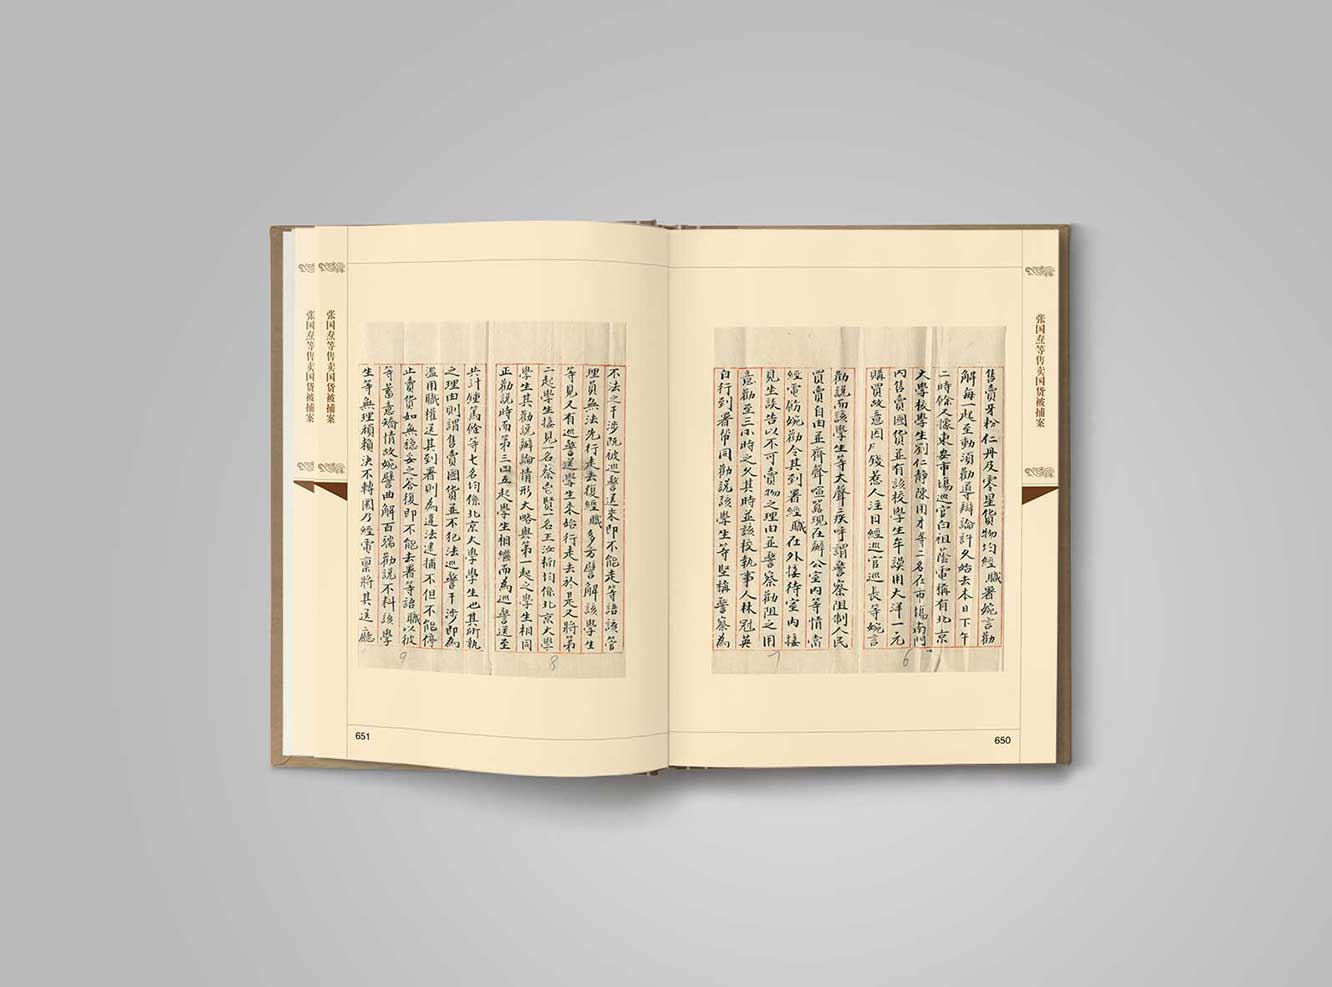 张国焘等售卖国货被捕案
售賣牙粉仁丹及零星貨物均經職署婉言勸
解每一起至動須勸導辯論許久始去本日下午
二時餘人據東安市場巡官白祖蔭電稱有北京
大學校學生劉仁靜陳用才等二名在市場南門
內售賣國貨並有該校學生牟謨用大洋一元
購買故意因戶錢惹人注目經巡官巡長等婉言
6
勸說而該學生等大聲疾呼謂警察阻制人民
買賣自由並齊聲喧罵現在解公室內等情當
經電飭婉勸令其到署經職在外接待室內接
見生談告以不可賣物之理由並警察勸阻之用
意勸至三小時之久其時並該校執事人林冠英
自行到署幫同勸說該學生等堅稱警察為
7
650
不法之干涉既被巡警送來即不能走等語該管
理員無法先行走去復經職多方譬解該學生
等見又有巡警送學生來始行走去於是又將第
二起學生接見一名蔡 賢一名王汝楠均係北京大學
學生其勸說辯論情形大略與第一起之學生相同
正勸說時而第三四五起學生相繼而為巡警送至
8
共計鍾篤餘等七名均係北京大學學生也其所執
之理由則謂售賣國貨並不犯法巡警干涉即為
濫用職權送其到署則為違法逮捕不但不能停
止賣貨如無穩妥之答復即不能去署等語職以彼
等蓄意矯情故婉譬曲解百端勸說不料該學
生等無理頑賴決不轉圜乃經電稟將其送廳
9
651
张国焘等售卖国货被捕案
张国焘等售卖国货被捕案